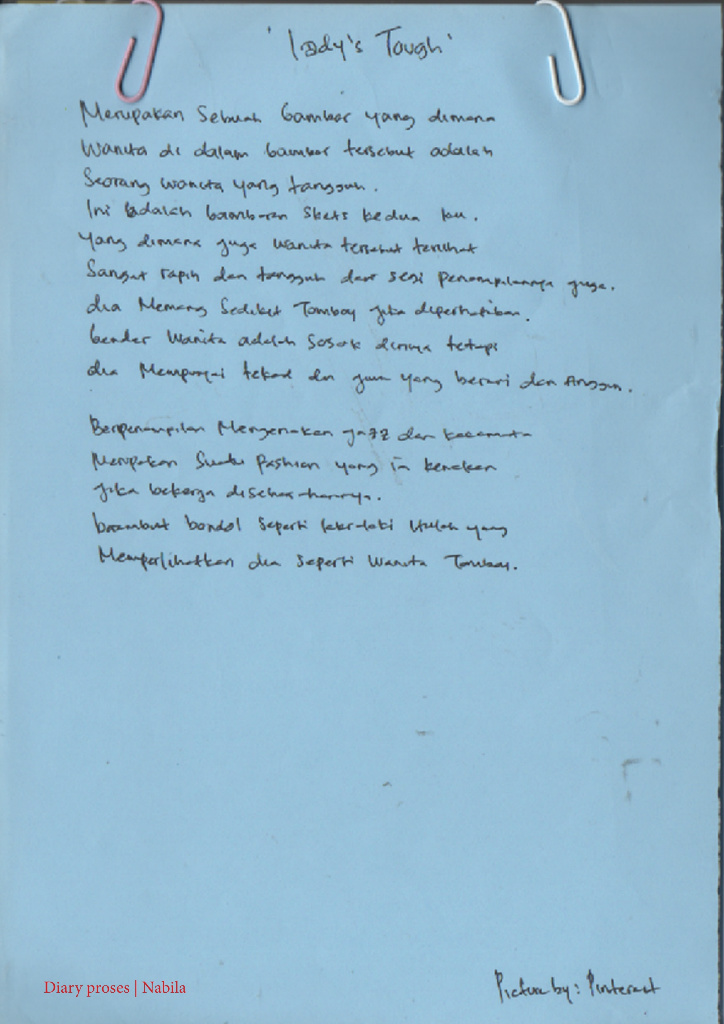 'Lady's Tough'
Merupakan Sebuah Gambar yang dimana
Wanita di dalam Gambar tersebut adalah
Seorang wanita yang tangguh.
Ini adalah Gambaran Skets kedua ku.
Yang dimana juga Wanita tersebut terlihat
Sangat rapih dan tangguh dari segi penampilannya juga.
dia Memang Sedikit Tomboy jika diperhatikan.
Gender Wanita adalah Sosok dirinya tetapi
dia Mempunyai tekad dan jiwa yang berani dan Anggun.
Berpenampilan Mengenakan jazz dan kacamata
Merupakan Suatu Fashion yang ia kenakan
jika bekerja disehari-harinya.
brambut bondol seperti laki-laki itulah yang
Memperlihatkan dia seperti Wanita Tomboy.
Diary proses | Nabila
Picture by : Pinterest